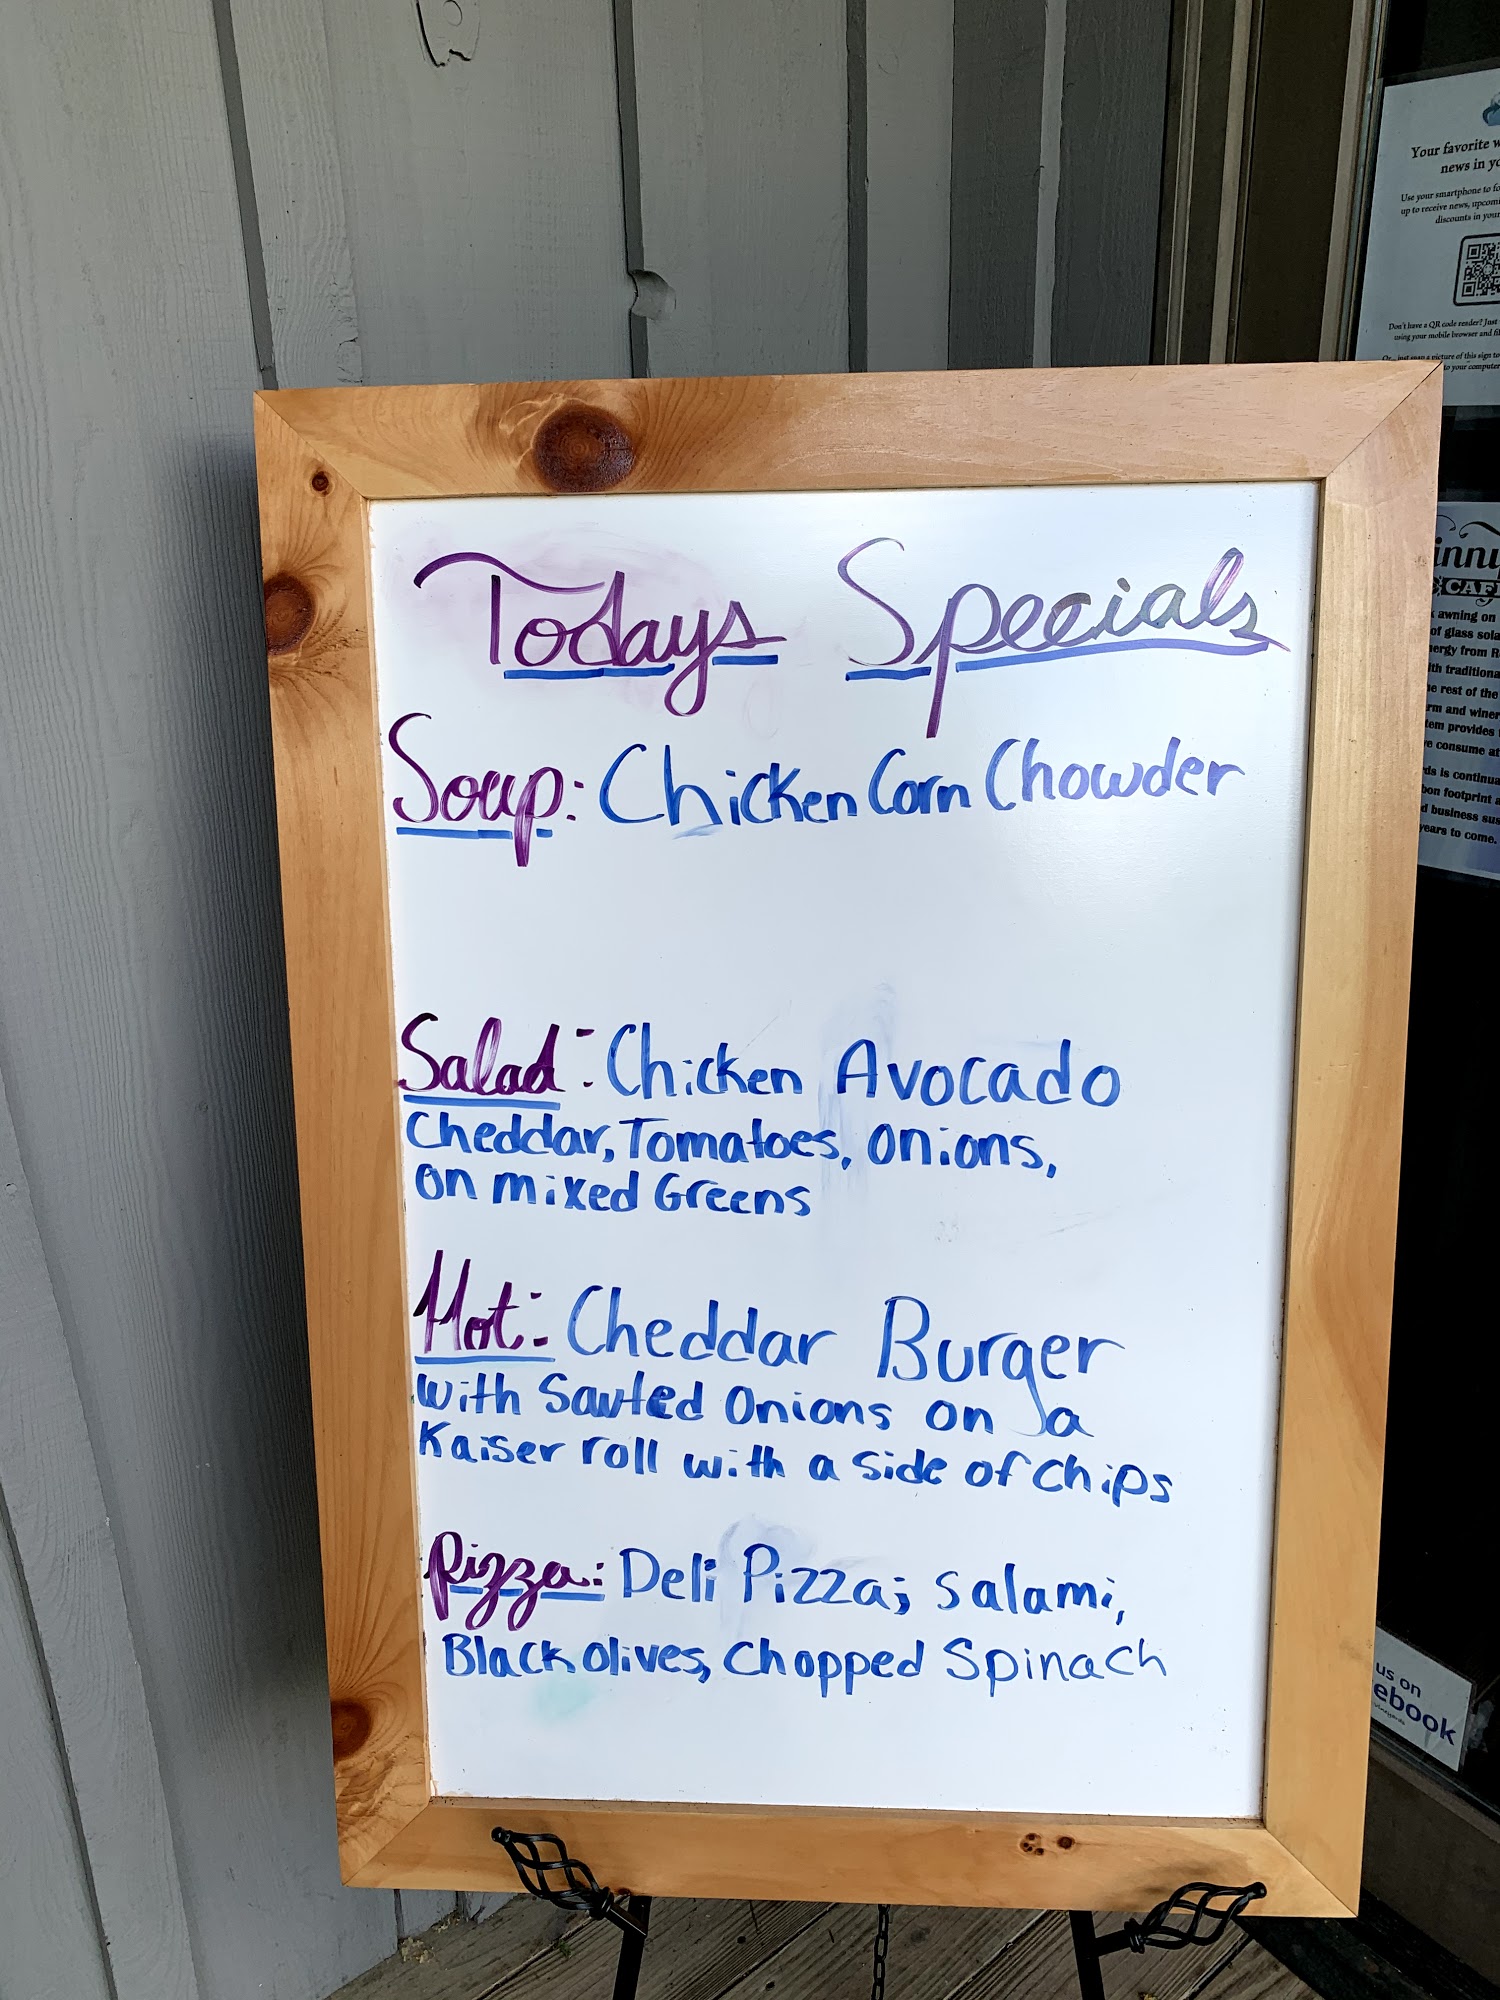 Todays Specials
Soup: Chicken Corn Chowder
Salad: Chicken Avocado
Cheddar, Tomatoes, Onions,
on mixed Greens
Hot: Cheddar Burger
with Sauted Onions on a
Kaiser roll with a side of chips
Pizza: Deli Pizza; Salami,
Black olives, Chopped Spinach
Your favorite
news in
Use your smartphone to
up to receive news,
discounts in your
Don't have a QR code reader? Just
using your mobile browser and
picture of this sign to
to your computer
CAF
awning on
of glass
from
with traditional
the rest of the
and
provides
consume
is
footprint
business
years to come.
us on
ebook